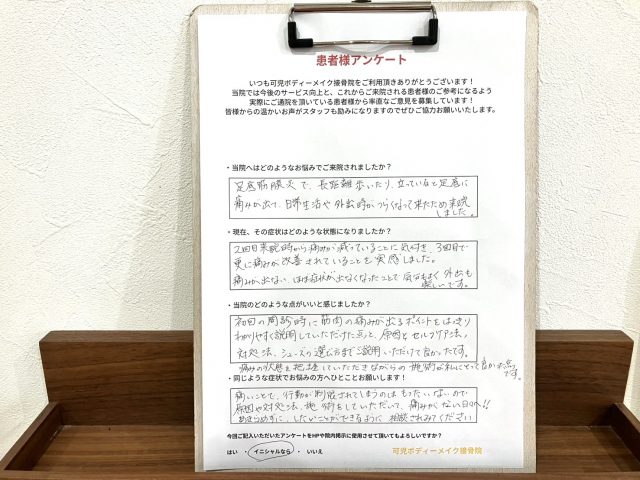 患者様アンケート
いつも可児ボディーメイク接骨院をご利用頂きありがとうございます！
当院では今後のサービス向上と、これからご来院される患者様のご参考になるよう
実際にご通院を頂いている患者様から率直なご意見を募集しています！
皆様からの温かいお声がスタッフも励みになりますのでぜひご協力お願いいたします。
・当院へはどのようなお悩みでご来院されましたか？
足底筋膜炎で、長距離歩いたり、立っていると足底に
痛みが出て、日常生活や外出時がつらくなって来たため来院
しました。
・現在、その症状はどのような状態になりましたか？
2回目来院時から痛みが減っていることに気付き、3回目で
更に痛みが改善されていることを実感しました。
痛みが出ない、ほぼ症状が出なくなったことで気分もよく外出も
楽しいです。
・当院のどのような点がいいと感じましたか？
初回の問診時に筋肉の痛みが出るポイントをはっきり
わかりやすく説明していただけた点と、原因とセルフケア法、
対処法、シューズの選び方までご説明いただけて良かったです。
痛みの状態を把握していただきながらの施術が私にとって良かった点
です。
・同じような症状でお悩みの方へひとことお願いします！
痛いことで、行動が制限されてしまうのはもったいないので
原因や対処法、施術をしていただいて、痛みがない日々へ!!
あきらめずに、したいことができるように相談されみてください
今回ご記入いただいたアンケートをHPや院内掲示に使用させて頂いてもよろしいですか？
はい ・ イニシャルなら ・ いいえ
可児ボディーメイク接骨院